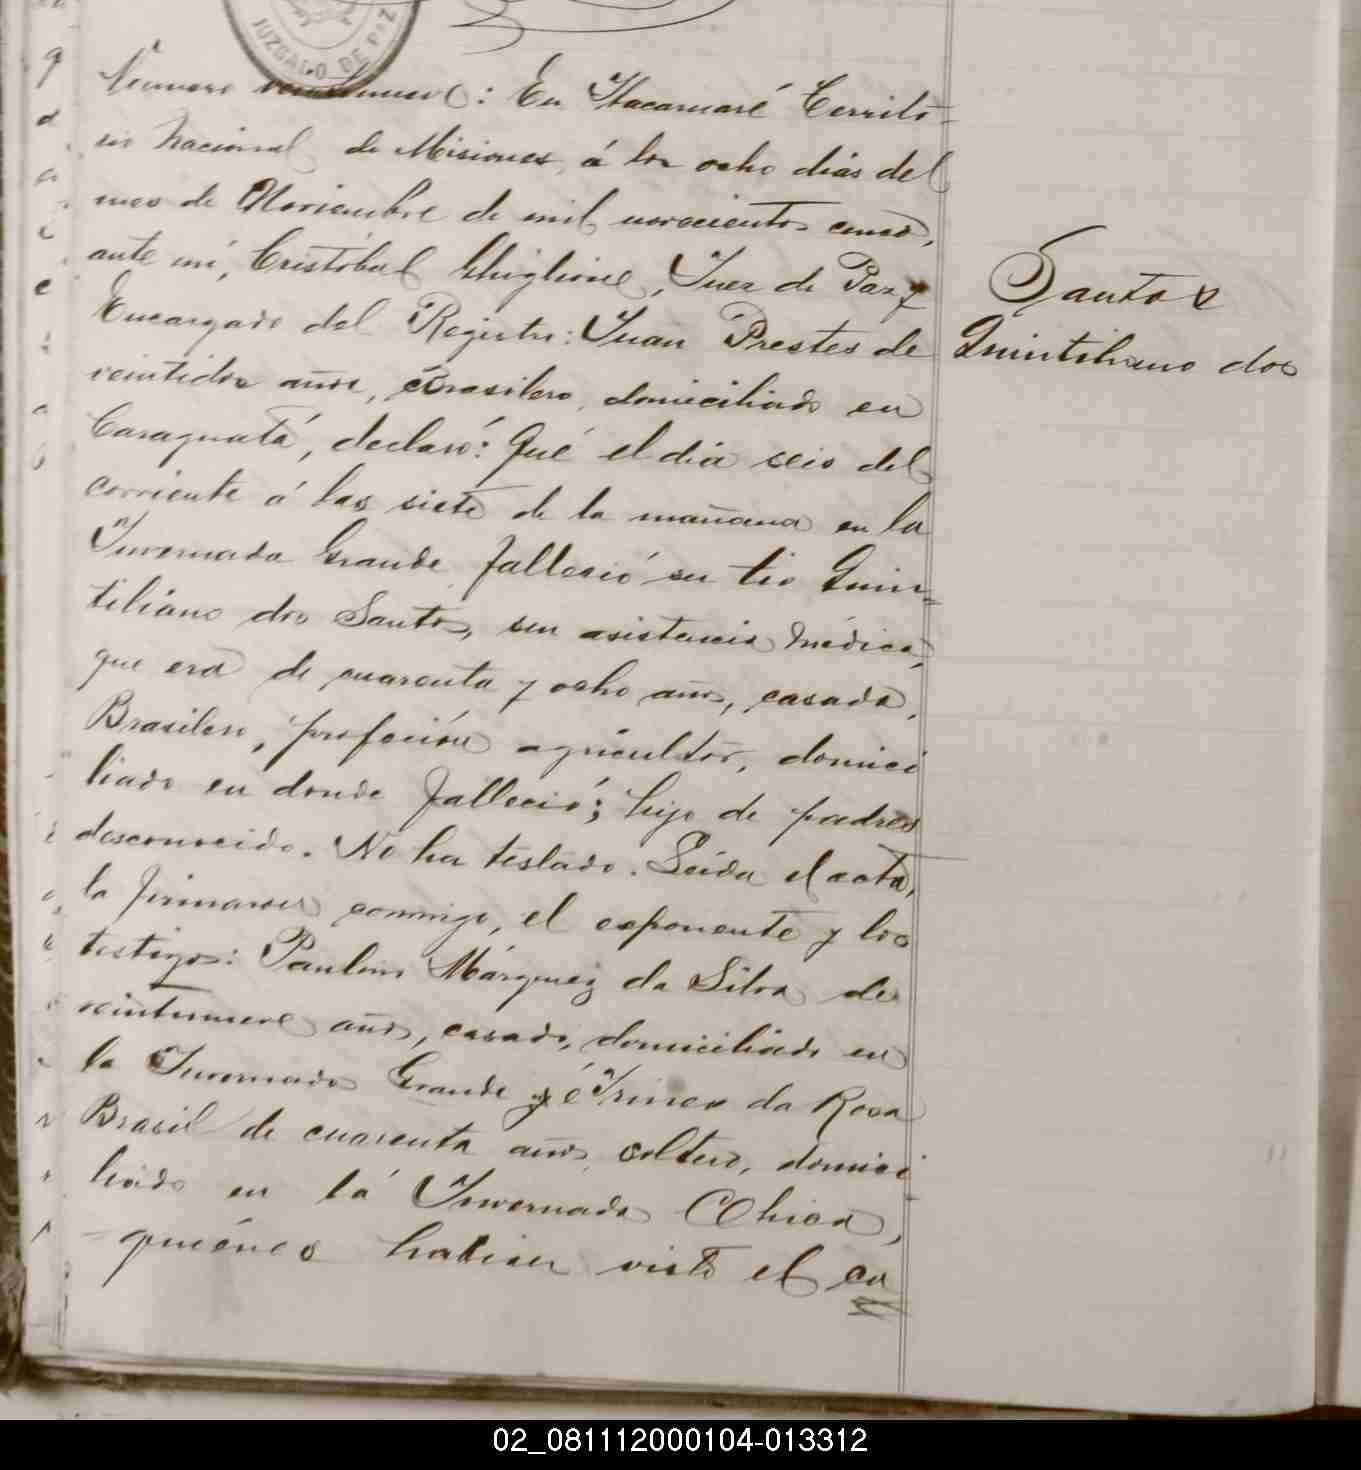 JUZGADO DE PAZ
Número veintinueve: En Itacaruaré Territo-
rio Nacional de Misiones, á los ocho dias del
mes de Noviembre de mil novecientos cinco,
ante mi, Cristóbal Ghiglione, Juez de Paz y
Encargado del Registro: Juan Prestes de
veintidos años, Brasilero, domiciliado en
Caraguatá, declaró: Qué el dia seis del
corriente á las siete de la mañana en la
Invernada Grande falleció su tio Quin-
tiliano dos Santos, sin asistencia médica,
que era de cuarenta y ocho años, casado,
Brasilero, profeción agricultor, domici
liado en donde falleció; hijo de padres
desconocido. No ha testado. Leida el acta,
la firmaron conmigo, el esponente y los
testigos: Paulino Márquez da Silva de
veintinueve años, casado, domiciliado en
la Invernada Grande y é Irineo da Rosa
Brasil de cuarenta años, soltero, domici
liado en lá Invernada Chica,
quiénes habian visto el ca
Santos
Quintiliano dos
02_081112000104-013312